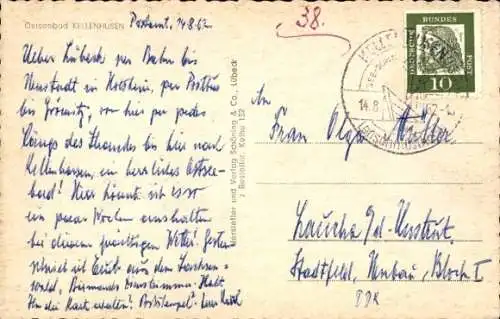 Ostseebad KELLENHUSEN
Postamt, 14.8.62
38.
Ueber Lübeck per Bahn bis
Neustadt in Holstein, per Postbus
bis Grömitz, von hier per pedes
längs des Strandes bis hier nach
Kellenhusen, ein herrliches Ostsee-
bad! Hier könnte ich es so
ein paar Wochen aushalten
bei diesem prächtigen Wetter! Gestern
schrieb ich Euch aus dem Sachsen-
wald, Bismarcks
Karte erhalten? Poststempel!
Hersteller und Verlag Schöning & Co., Lübeck
Bestellnr. Kelhu 152
DEUTSCHE BUNDESPOST
10
14.8.
An
Frau Olga Müller
Laucha a/d. Unstrut,
Stadtfeld, Neubau, Block I
DDR